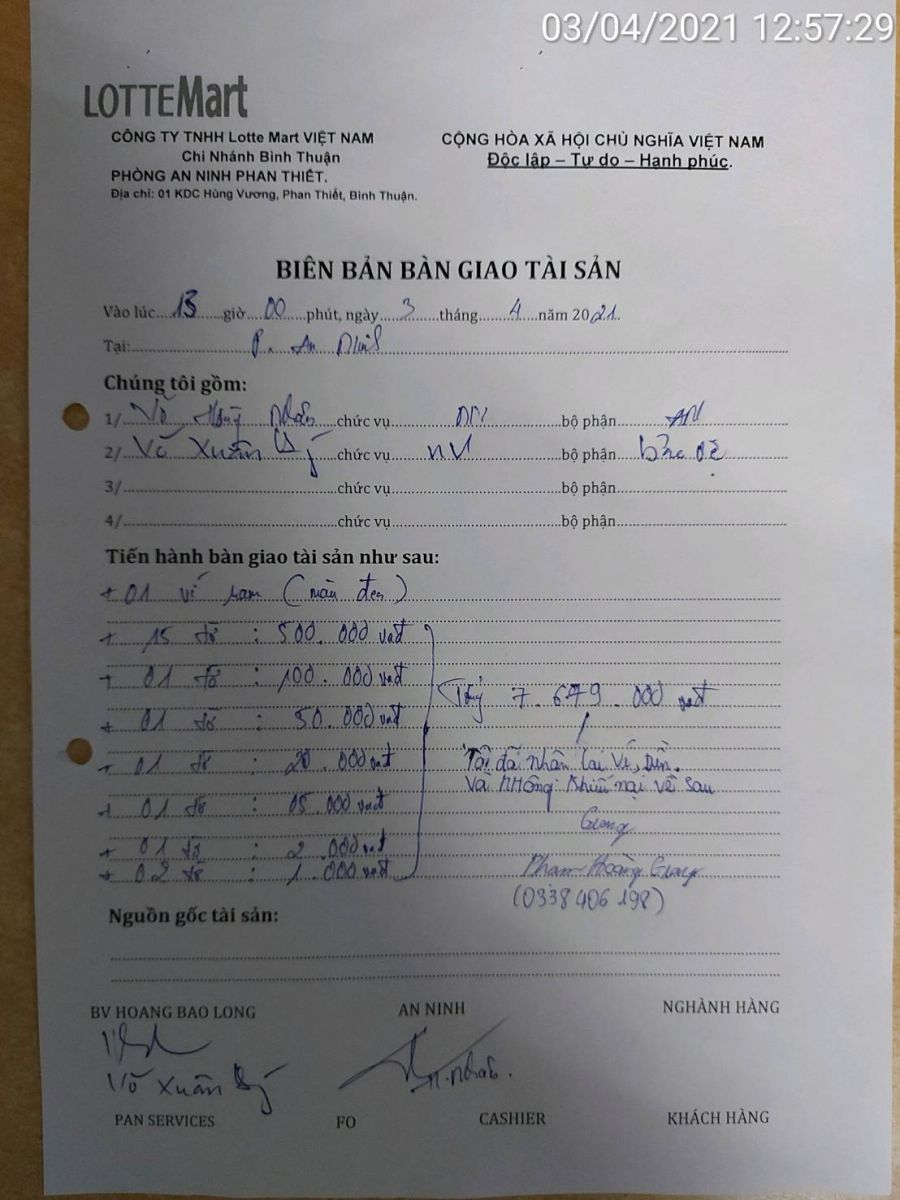 03/04/2021 12:57:29
LOTTEMart
CÔNG TY TNHH Lotte Mart VIỆT NAM
Chi Nhánh Bình Thuận
PHÒNG AN NINH PHAN THIẾT.
Địa chỉ: 01 KDC Hùng Vương, Phan Thiết, Bình Thuận.
CỘNG HÒA XÃ HỘI CHỦ NGHĨA VIỆT NAM
Độc lập – Tự do – Hạnh phúc.
BIÊN BẢN BÀN GIAO TÀI SẢN
Vào lúc 13 giờ 00 phút, ngày 3 tháng 4 năm 2021.
Tại: P. An Ninh
Chúng tôi gồm:
1/ Võ Nhân chức vụ bộ phận AN
2/ Võ Xuân Lý chức vụ NV bộ phận bảo vệ
3/ chức vụ bộ phận
4/ chức vụ bộ phận
Tiến hành bàn giao tài sản như sau:
+ 01 ví nam (màu đen)
+ 15 tờ : 500.000 vnđ
+ 01 tờ : 100.000 vnđ
+ 01 tờ : 50.000 vnđ
+ 01 tờ : 20.000 vnđ
+ 01 tờ : 05.000 vnđ
+ 01 tờ : 2.000 vnđ
+ 02 tờ : 1.000 vnđ
Tổng 7.679.000 vnđ
Tôi đã nhận lại ví, tiền.
Và không khiếu nại về sau
Giang
Phạm Hoàng Giang
(0338406198)
Nguồn gốc tài sản:
BV HOANG BAO LONG AN NINH NGHÀNH HÀNG
Võ Xuân Lý
H.Nhân.
PAN SERVICES FO CASHIER KHÁCH HÀNG